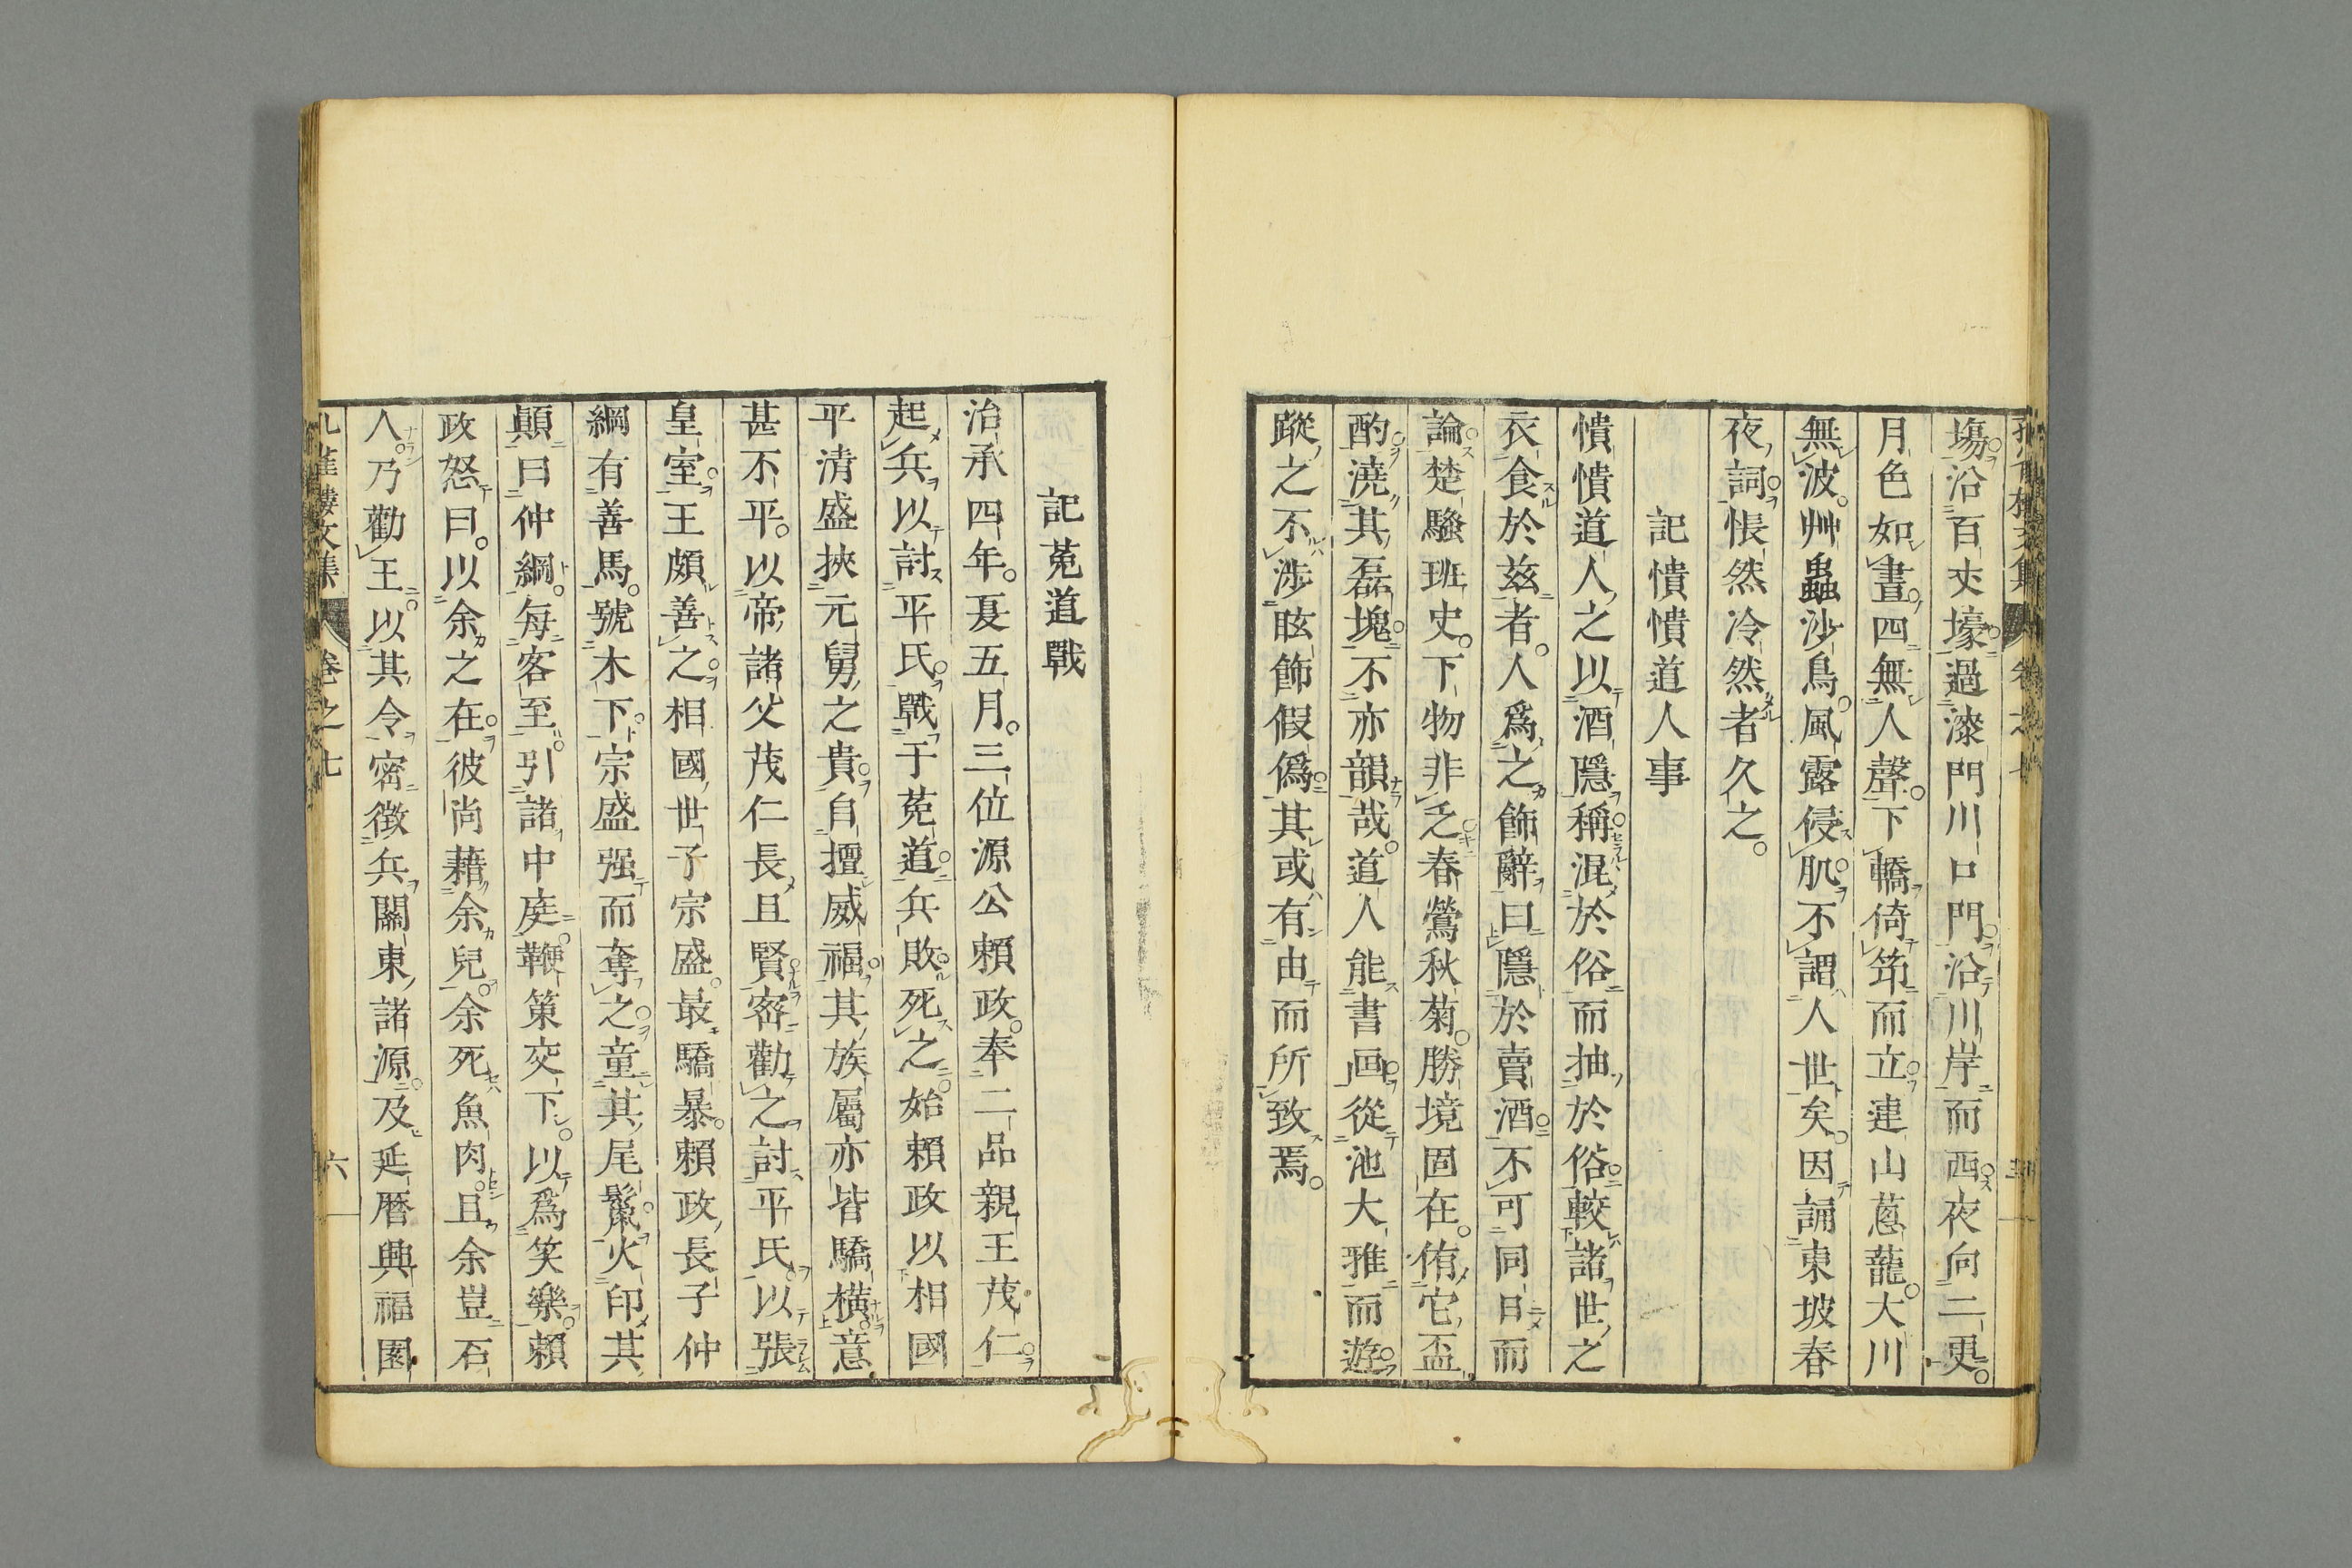 塲沿百丈壕過漆門川口門沿川岸而西夜向二更
月色如晝四無人聲下轎倚筇而立連山蔥蘢大川
無波艸蟲沙鳥風露侵肌不謂人世矣因誦東坡春
夜詞悵然冷然者久之
記憒憒道人事
憒憒道人之以酒隱稱混於俗而抽於俗較諸世之
衣食於茲者人爲之飾辭曰隱於賣酒不可同日而
論楚騷班史下物非乏春鶯秋菊勝境固在侑它盃
酌澆其磊塊不亦韻哉道人能書画從池大雅而遊
蹤之不涉眩飾假僞其或有由而所致焉
記菟道戰
治承四年夏五月三位源公賴政奉二品親王茂仁
起兵以討平氏戰于菟道兵敗死之始賴政以相國
平清盛挾元舅之貴自擅威福其族屬亦皆驕橫意
甚不平以帝諸父茂仁長且賢密勸之討平氏以張
皇室王頗善之相國世子宗盛最驕暴賴政長子仲
綱有善馬號木下宗盛强而奪之童其尾鬣火印其
顚曰仲綱每客至引諸中庭鞭策交下以爲笑樂賴
政怒曰以余之在彼尚藉余兒余死魚肉且余豈石
人乃勸王以其令密徵兵關東諸源及延曆興福園
孔雀樓文集 卷之七 六